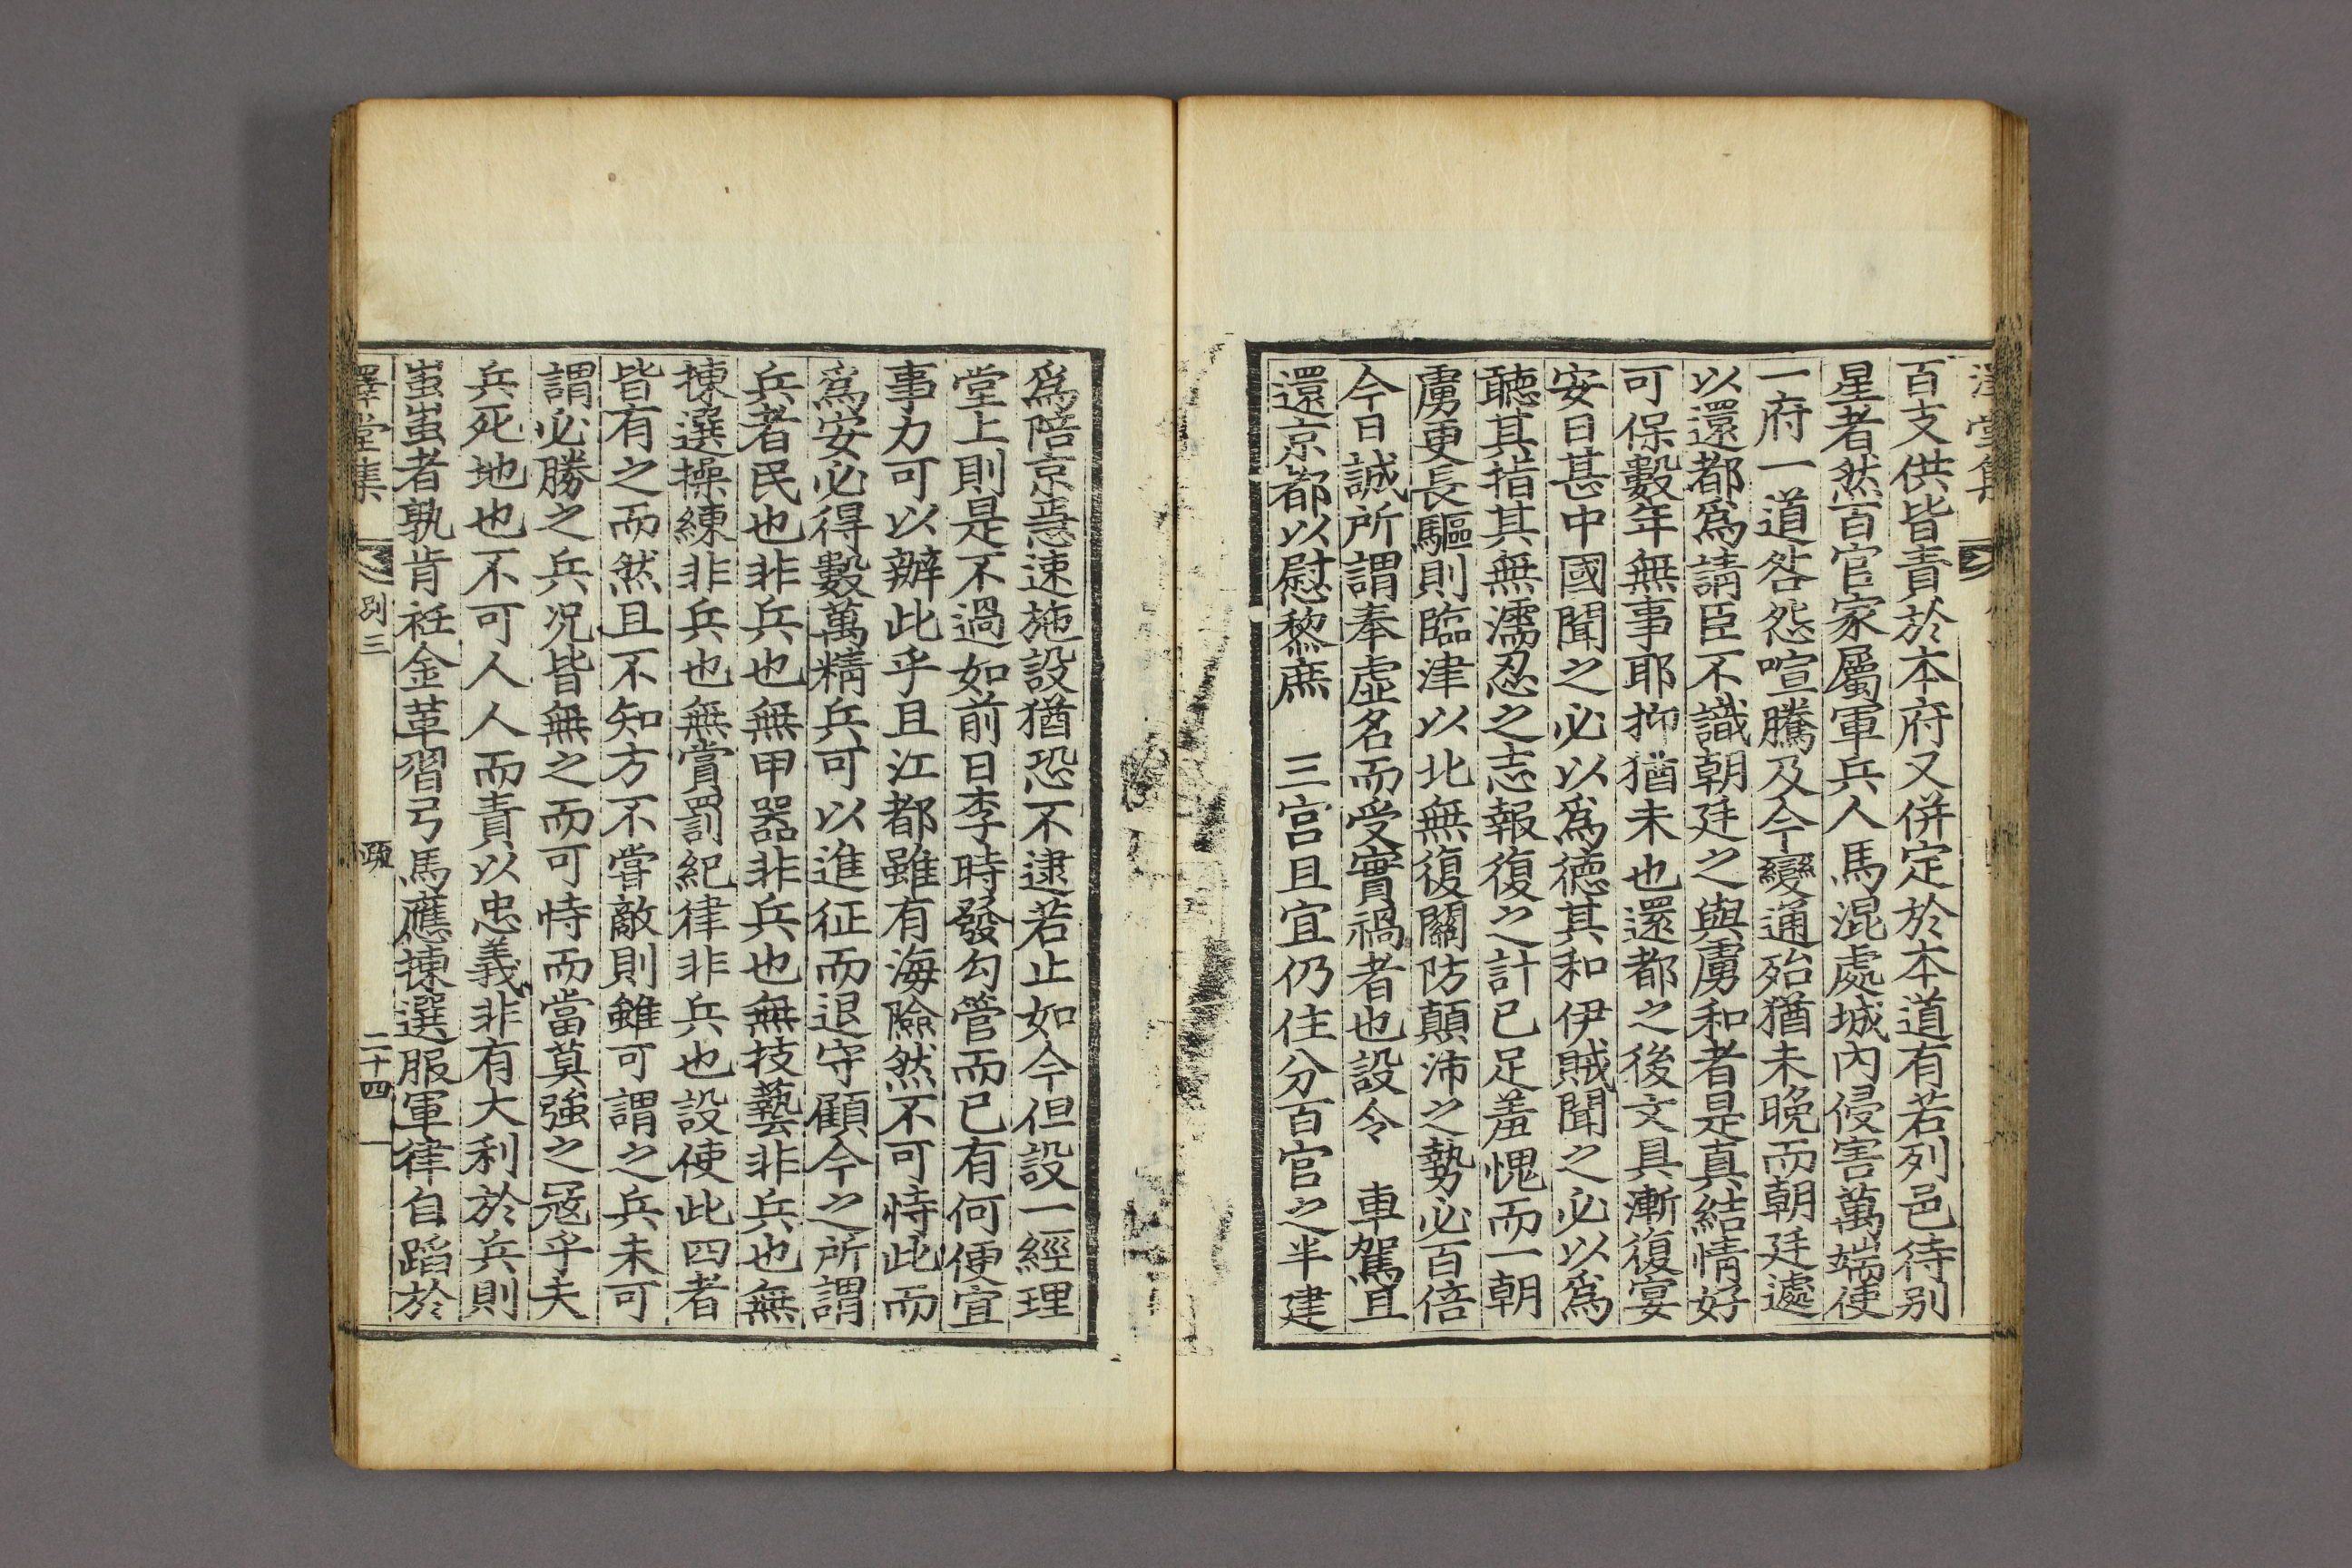 百支供皆責於本府又併定於本道有若列邑待别
星者然百官家屬軍兵人馬混處城內侵害萬端使
一府一道咎怨喧騰及今變通殆猶未晚而朝廷遽
以還都爲請臣不識朝廷之與虜和者是真結情好
可保數年無事耶抑猶未也還都之後文具漸復宴
安日甚中國聞之必以爲德其和伊賊聞之必以爲
聽其指其無濡忍之志報復之計已足羞愧而一朝
虜更長驅則臨津以北無復關防顛沛之勢必百倍
今日誠所謂奉虛名而受實禍者也設令 車駕且
還京都以慰黎庶 三宮且宜仍住分百官之半建
爲陪京亟速施設猶恐不逮若止如今但設一經理
堂上則是不過如前日李時發勾管而已有何便宜
事力可以辦此乎且江都雖有海險然不可恃此而
爲安必得數萬精兵可以進征而退守顧今之所謂
兵者民也非兵也無甲器非兵也無技藝非兵也無
揀選操練非兵也無賞罰紀律非兵也設使此四者
皆有之而然且不知方不嘗敵則雖可謂之兵未可
謂必勝之兵况皆無之而可恃而當莫強之冦乎夫
兵死地也不可人人而責以忠義非有大利於兵則
蚩蚩者孰肯衽金革習弓馬應揀選服軍律自蹈於
澤堂集 别三 疏 二十四